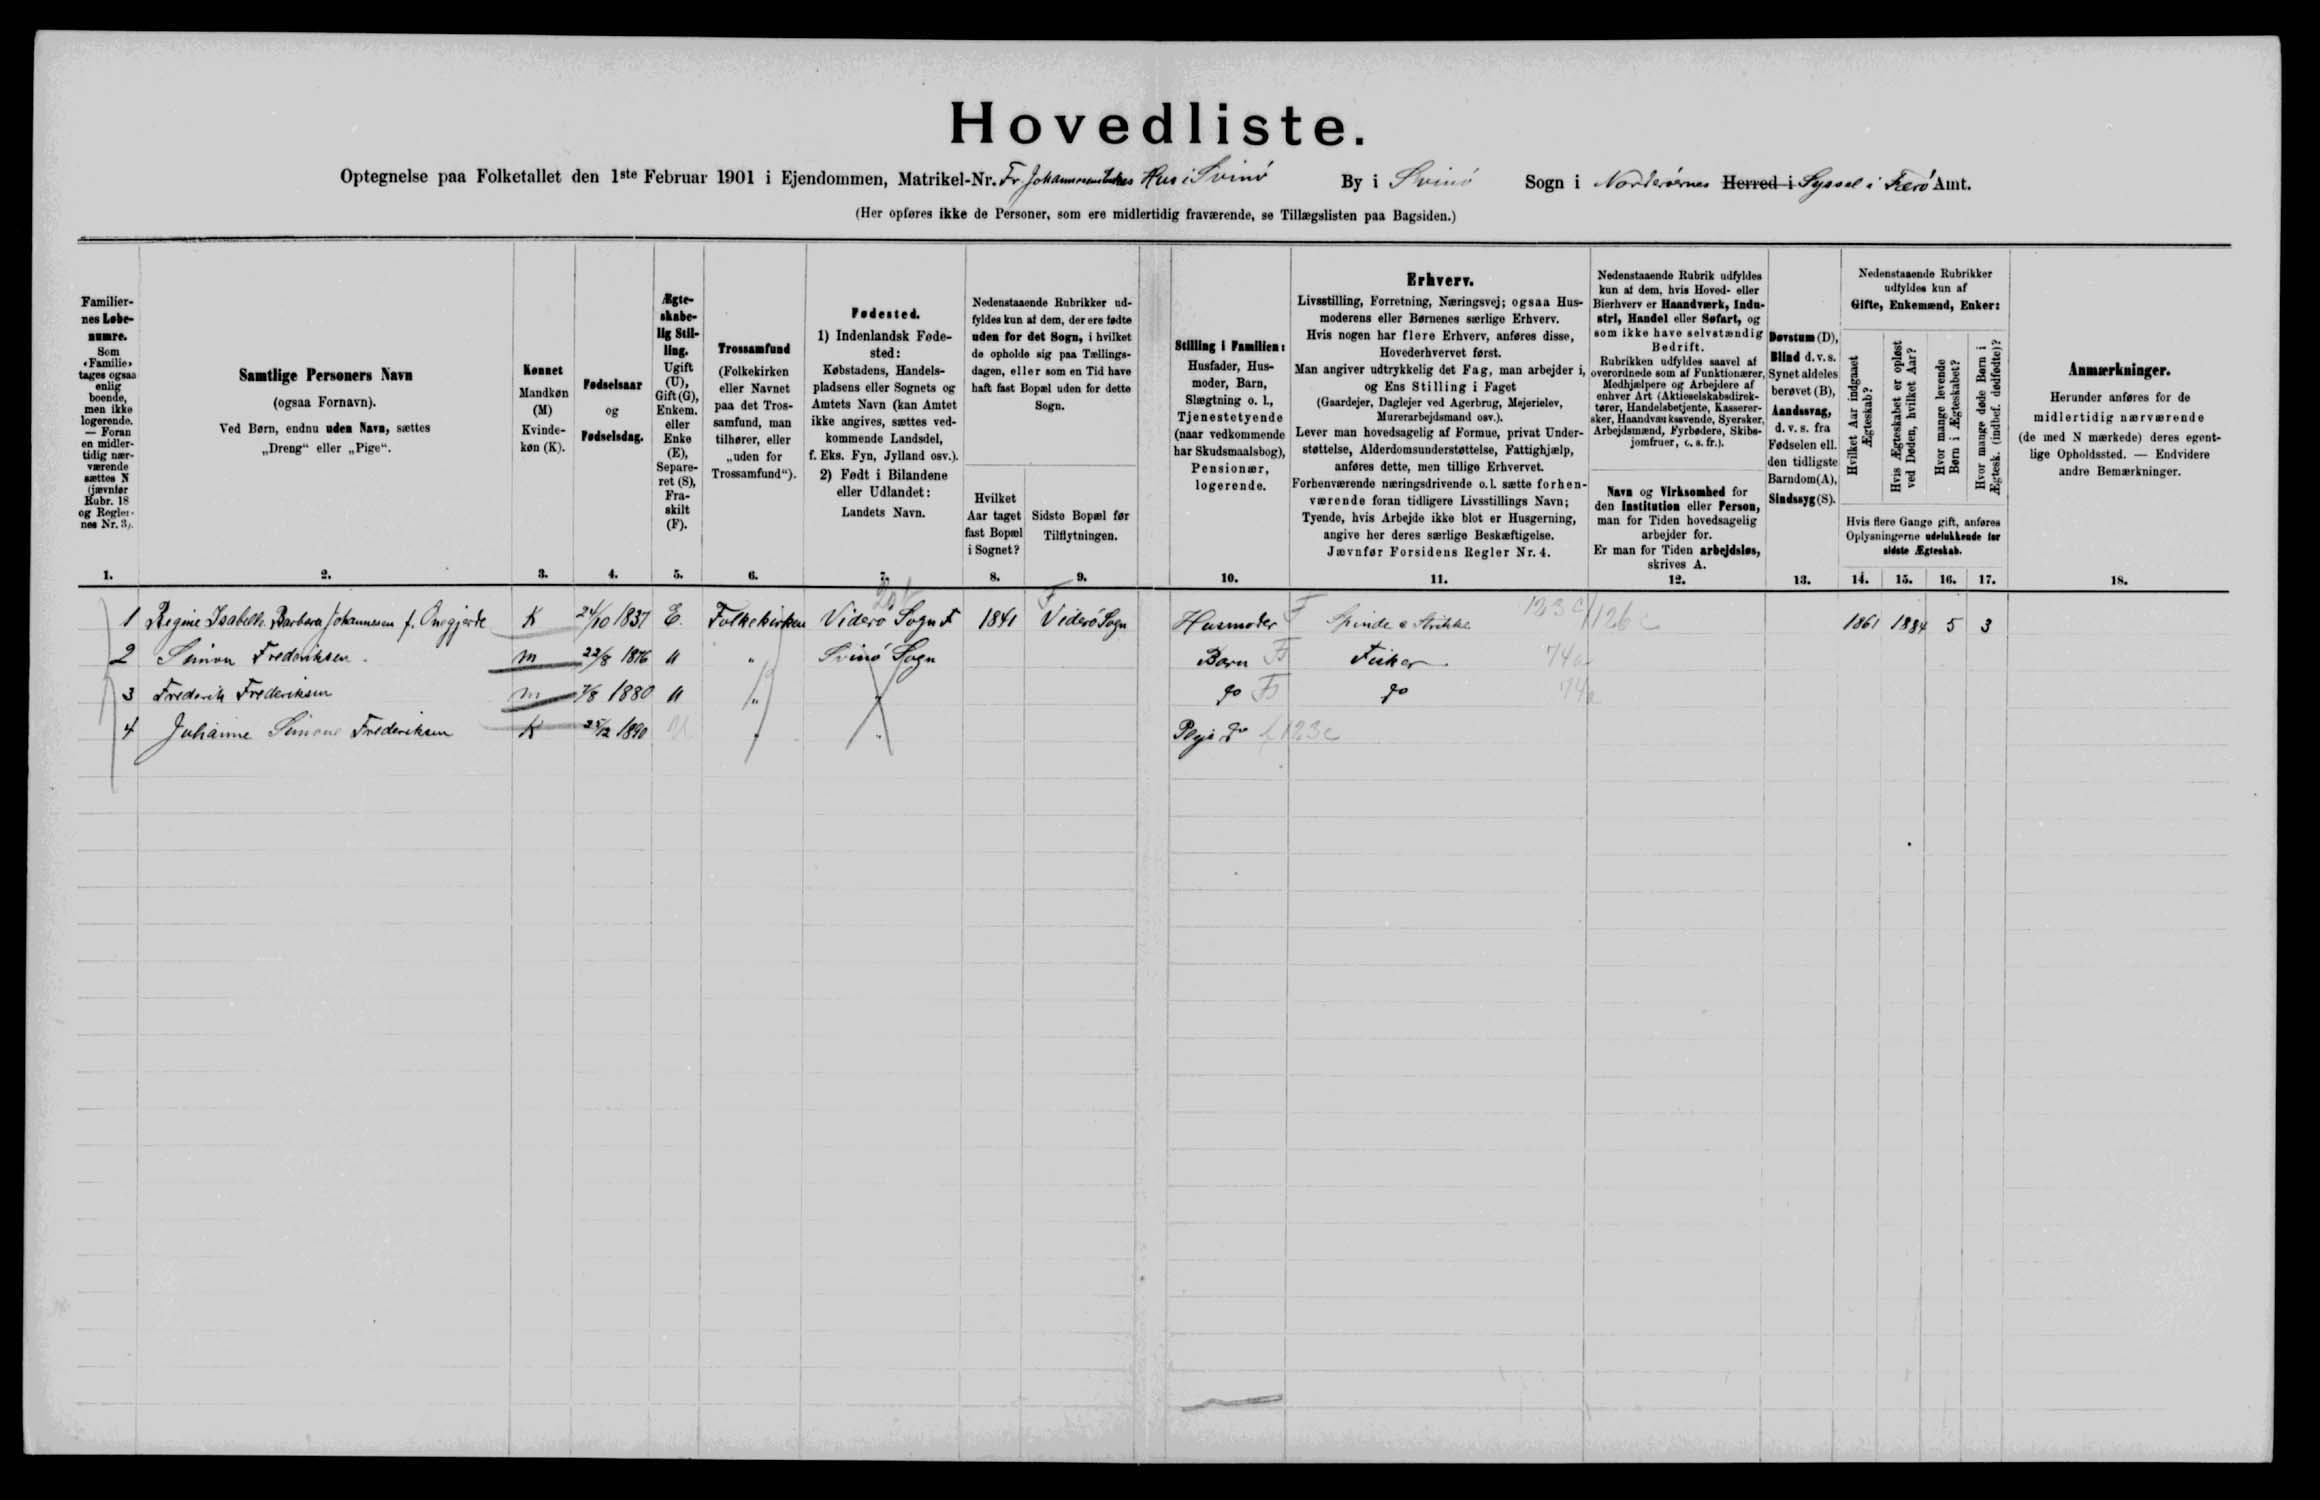 Hovedliste.
Optegnelse paa Folketallet den 1ste Februar 1901 i Ejendommen, Matrikel-Nr. Fr. Johannesens Enkes Hus i Svinø By i Svinø Sogn i Norderøernes Herred i Syssel i Færø Amt.
(Her opføres ikke de Personer, som ere midlertidig fraværende, se Tillægslisten paa Bagsiden.)
Familiernes Løbenumre.
Som «Familie» tages ogsaa enlig boende, men ikke logerende. — Foran en midlertidig nærværende sættes N (jævnfør Rubr. 18 og Reglernes Nr. 3).
Samtlige Personers Navn
(ogsaa Fornavn).
Ved Børn, endnu uden Navn, sættes
„Dreng“ eller „Pige“.
Kønnet
Mandkøn (M)
Kvindekøn (K).
Fødselsaar
og
Fødselsdag.
Ægteskabelig Stilling.
Ugift (U), Gift (G), Enkem. eller Enke (E), Separeret (S), Fraskilt (F).
Trossamfund
(Folkekirken eller Navnet paa det Trossamfund, man tilhører, eller „uden for Trossamfund“).
Fødested.
1) Indenlandsk Fødested:
Købstadens, Handelspladsens eller Sognets og Amtets Navn (kan Amtet ikke angives, sættes vedkommende Landsdel, f. Eks. Fyn, Jylland osv.).
2) Født i Bilandene eller Udlandet:
Landets Navn.
Nedenstaaende Rubrikker udfyldes kun af dem, der ere fødte uden for det Sogn, i hvilket de opholde sig paa Tællingsdagen, eller som en Tid have haft fast Bopæl uden for dette Sogn.
Hvilket Aar taget fast Bopæl i Sognet?
Sidste Bopæl før Tilflytningen.
Stilling i Familien:
Husfader, Husmoder, Barn, Slægtning o. l., Tjenestetyende (naar vedkommende har Skudsmaalsbog), Pensionær, logerende.
Erhverv.
Livsstilling, Forretning, Næringsvej; ogsaa Husmoderens eller Børnenes særlige Erhverv.
Hvis nogen har flere Erhverv, anføres disse, Hovederhvervet først.
Man angiver udtrykkelig det Fag, man arbejder i, og Ens Stilling i Faget
(Gaardejer, Daglejer ved Agerbrug, Mejerielev, Murerarbejdsmand osv.).
Lever man hovedsagelig af Formue, privat Understøttelse, Alderdomsunderstøttelse, Fattighjælp, anføres dette, men tillige Erhvervet.
Forhenværende næringsdrivende o. l. sætte forhenværende foran tidligere Livsstillings Navn;
Tyende, hvis Arbejde ikke blot er Husgerning, angive her deres særlige Beskæftigelse.
Jævnfør Forsidens Regler Nr. 4.
Nedenstaaende Rubrik udfyldes kun af dem, hvis Hoved- eller Bierhverv er Haandværk, Industri, Handel eller Søfart, og som ikke have selvstændig Bedrift.
Rubrikken udfyldes saavel af overordnede som af Funktionærer, Medhjælpere og Arbejdere af enhver Art (Aktieselskabsdirektører, Handelsbetjente, Kasserersker, Haandværkssvende, Syersker, Arbejdsmænd, Fyrbødere, Skibsjomfruer, o. s. fr.).
Navn og Virksomhed for den Institution eller Person, man for Tiden hovedsagelig arbejder for.
Er man for Tiden arbejdsløs, skrives A.
Døvstum (D), Blind d. v. s. Synet aldeles berøvet (B), Aandssvag, d. v. s. fra Fødselen ell. den tidligste Barndom (A), Sindssyg (S).
Nedenstaaende Rubrikker udfyldes kun af
Gifte, Enkemænd, Enker:
Hvilket Aar indgaaet Ægteskab?
Hvis Ægteskabet er opløst ved Døden, hvilket Aar?
Hvor mange levende Børn i Ægteskabet?
Hvor mange døde Børn i Ægtesk. (indbef. dødfødte)?
Hvis flere Gange gift, anføres Oplysningerne udelukkende for sidste Ægteskab.
Anmærkninger.
Herunder anføres for de midlertidig nærværende (de med N mærkede) deres egentlige Opholdssted. — Endvidere andre Bemærkninger.
1. 2. 3. 4. 5. 6. 7. 8. 9. 10. 11. 12. 13. 14. 15. 16. 17. 18.
1 Regine Isabelle Barbara Johannesen f. Önegjerde K 24/10 1837 E. Folkekirken Viderø Sogn F 1841 Viderø Sogn Husmoder F Spinde o Strikke 123c/126c 1861 1884 5 3
2 Simon Frederiksen. m 22/8 1876 U " Svinø Sogn Barn F Fisker 74a
3 Frederik Frederiksen m 7/8 1880 U " " do F do 74a
4 Johanne Simone Frederiksen K 25/12 1890 U " " Pleje do f 123c